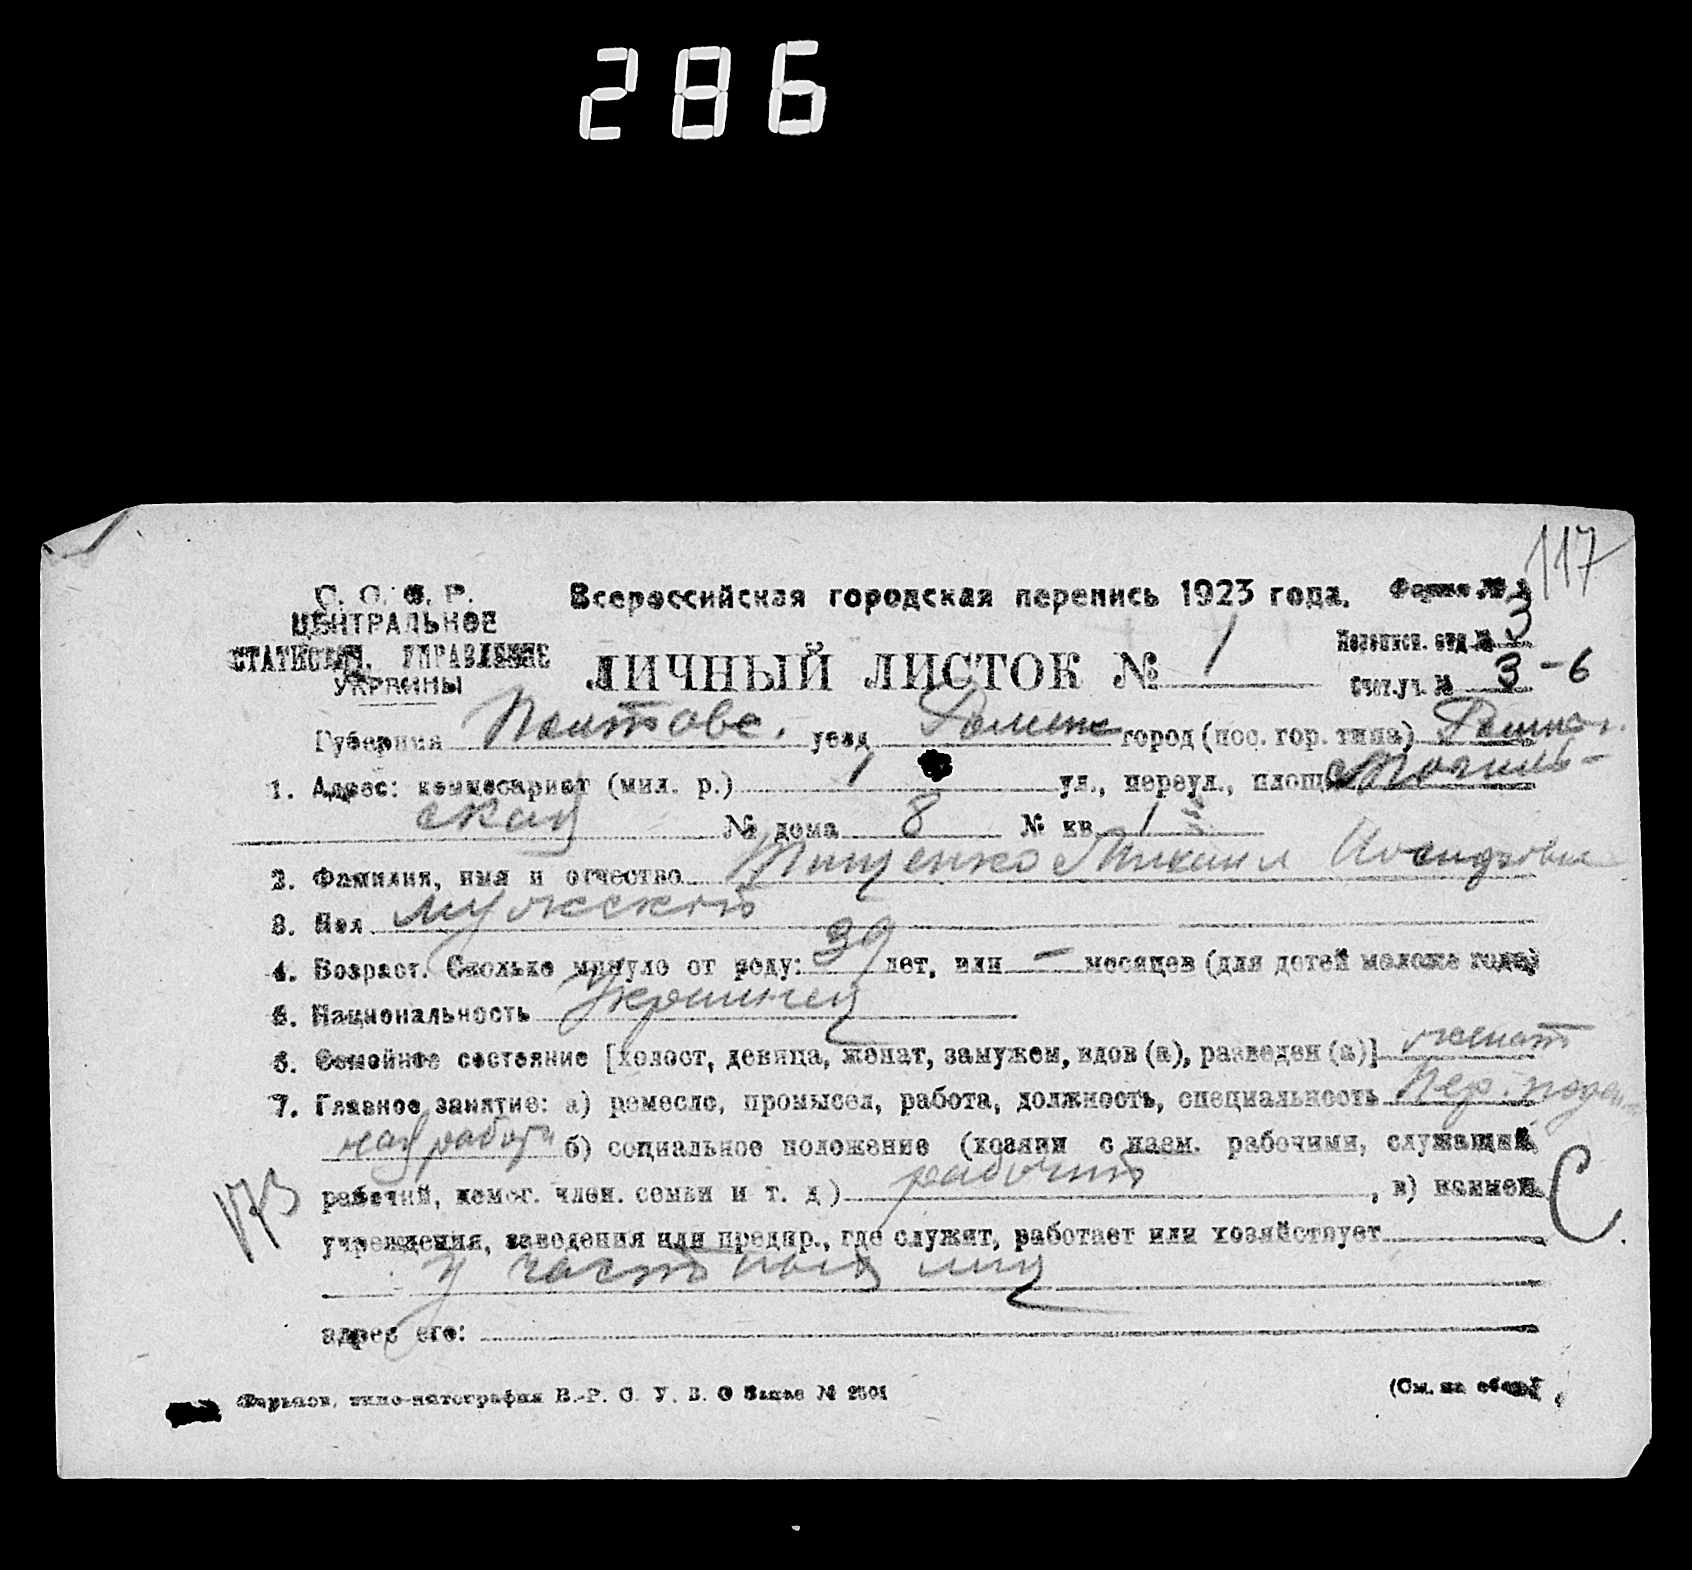 286
117
С. С. С. Р.
ЦЕНТРАЛЬНОЕ
СТАТИСТИЧ. УПРАВЛЕНИЕ
УКРАИНЫ
Всероссийская городская перепись 1923 года.
Форма №
Переписн. отд. № 3
ЛИЧНЫЙ ЛИСТОК № 1
Счет. уч. № 3-6
Губерния Полтавс. уезд Роменс город (пос. гор. типа)
1. Адрес: комиссариат (мил. р.) 1 ул., переул., площ.
ская № дома 8 № кв. 1
2. Фамилия, имя и отчество Тищенко Михаил Иосифович
3. Пол мужской
4. Возраст. Сколько минуло от роду: 39 лет, или – месяцев (для детей моложе года)
5. Национальность Украинец
6. Семейное состояние [холост, девица, женат, замужем, вдов (а), разведен (а)] женат
7. Главное занятие: а) ремесло, промысел, работа, должность, специальность
ная работа б) социальное положение (хозяин с наем. рабочими, служащий,
рабочий, помог. член. семьи и т. д.) рабочий, в) наимен.
учреждения, заведения или предпр., где служит, работает или хозяйствует
у частных лиц
адрес его:
173
С
Харьков, типо-литография В.-Р. С. У. В. О Заказ № 2501
(См. на обор.)